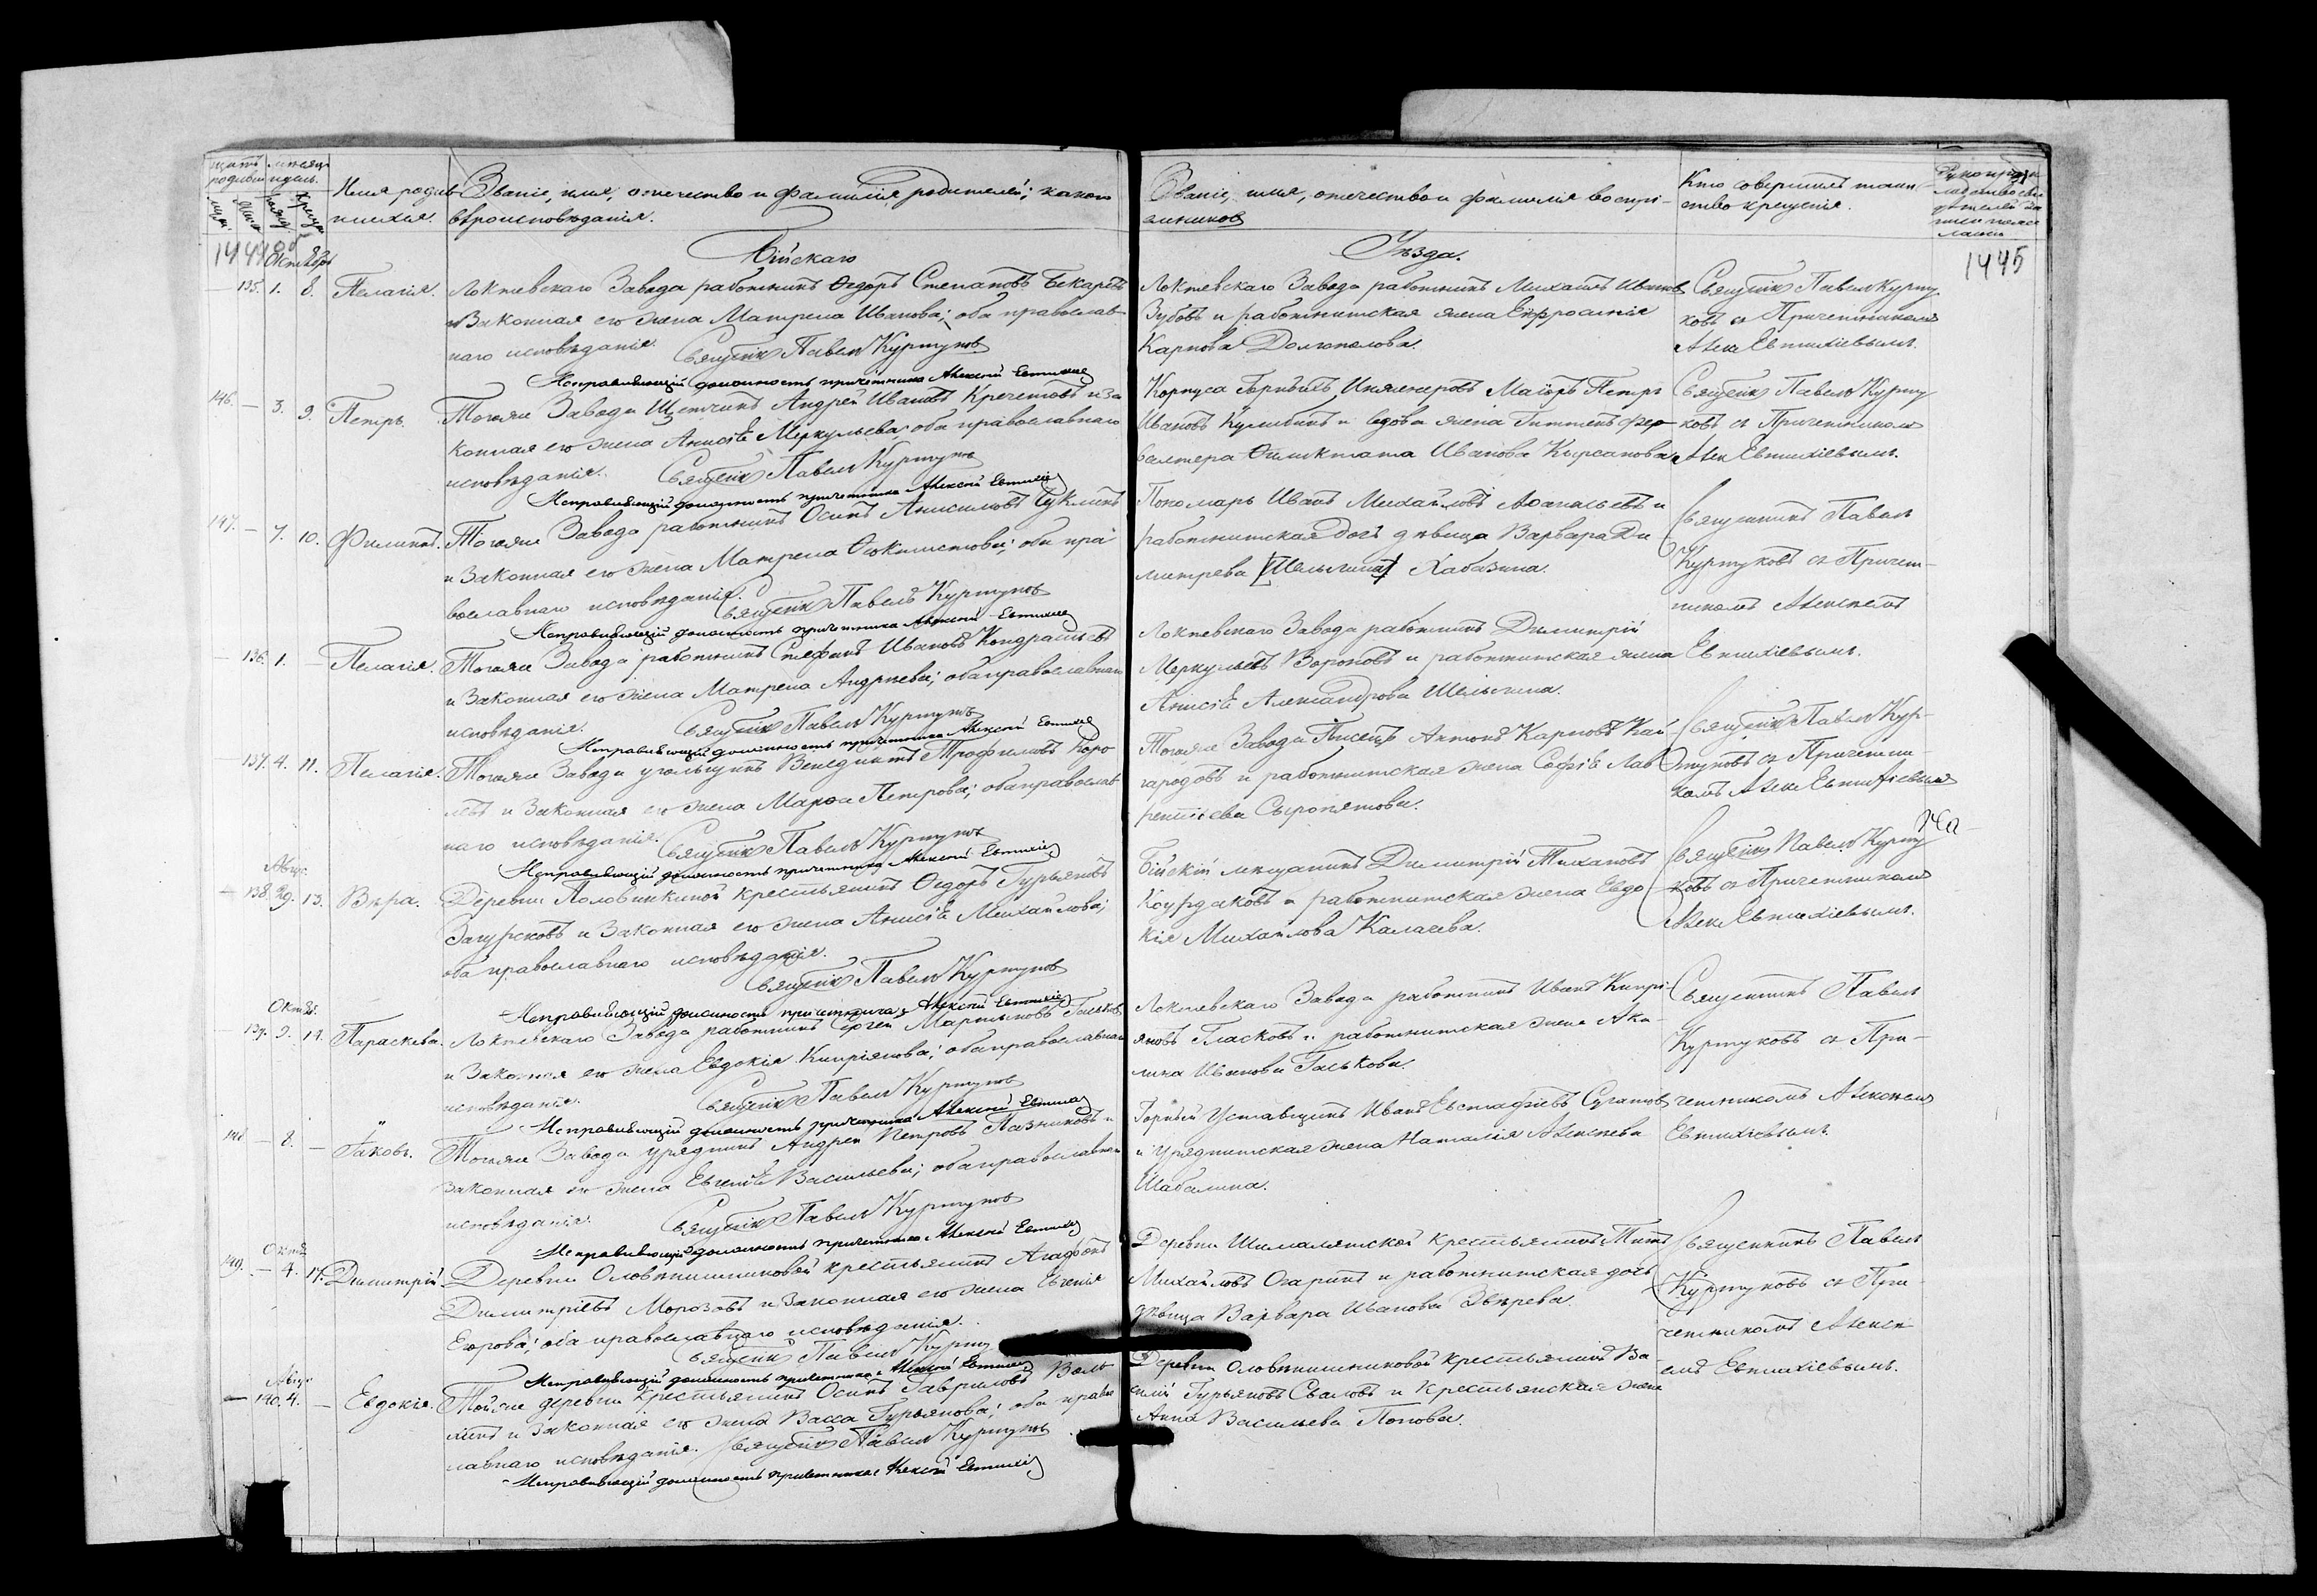 щотъ родивш
мѣсяцъ и день.
Имя родив-
шихся.
Званіе, имя, отчество и фамилія родителей; какого
вѣроисповѣданія.
Званіе, имя, отчество и фамилія воспрі-
емниковъ
Кто совершилъ таин-
ство крещенія.
1444об
Октябрь
Бійскаго
Уѣзда.
1445
135. 1. 8. Пелагія.
Локтевскаго Завода работникъ Ѳедоръ Степановъ Бекаревъ
и Законная его жена Матрена Иванова; оба православ-
наго исповѣданія. Священникъ Павелъ Куртуковъ
Исправляющій должность причетника Алексѣй Евтихіевъ
Локтевскаго Завода работникъ Михаилъ Ивановъ
Зубовъ и работничская жена Евфросинія
Карпова Долгополова.
Священникъ Павелъ Курту
ковъ съ Причетникомъ
Алек. Евтихіевымъ.
146. — 3. 9. Петръ.
Тогоже Завода Щетчикъ Андрей Ивановъ Кречетовъ и за
конная его жена Анисія Меркульева; оба православнаго
исповѣданія. Священникъ Павелъ Куртуковъ
Исправляющій должность причетника Алексѣй Евтихіевъ
Корпуса Горныхъ Инженеровъ Маіоръ Петръ
Ивановъ Кулибинъ и вдова жена Гиттенъ фер-
валтера Ѳиоктиста Иванова Кирсанова.
Священникъ Павелъ Курту
ковъ съ Причетникомъ
Алек Евтихіевымъ.
147. — 7. 10. Филиппъ.
Тогоже Завода работникъ Осипъ Анисимовъ Чуклинъ
и Законная его жена Матрена Ѳеоктистова; оба пра
вославнаго исповѣданія. Священникъ Павелъ Куртуковъ
Исправляющій должность причетника Алексѣй Евтихіевъ
Пономарь Иванъ Михайловъ Аѳанасьевъ и
работничская дочь дѣвица Варвара Ди
митрева [Шелыгина] Хабазина.
Священникъ Павелъ
Куртуковъ съ Причет-
никомъ Алексѣемъ
Евтихіевымъ.
136. 1. — Пелагія.
Тогоже Завода работникъ Стефанъ Ивановъ Кондратьевъ
и Законная его жена Матрена Андреева; оба православнаго
исповѣданія. Священникъ Павелъ Куртуковъ
Исправляющій должность причетника Алексѣй Евтихіевъ
Локтевскаго Завода работникъ Димитрій
Меркульевъ Вороновъ и работничская жена
Анисія Александрова Шелыгина.
137. 4. 11. Пелагія.
Тогоже Завода угольщикъ Венедиктъ Трофимовъ Коро
левъ и Законная его жена Марѳа Петрова; оба православ
наго исповѣданія. Священникъ Павелъ Куртуковъ
Исправляющій должность причетника Алексѣй Евтихіевъ
Тогоже Завода Писецъ Антонъ Карповъ Кай-
городовъ и работничская жена Софія Лав
рентіева Сыропятова.
Священникъ Павелъ Кур-
туковъ съ Причетни-
комъ Алек Евтихіевымъ
Авгус.
138. 29. 13. Вѣра.
Деревни Половинкиной крестьянинъ Ѳедоръ Гурьяновъ
Загурсковъ и Законная его жена Анисія Михайлова;
оба православнаго исповѣданія.
Священникъ Павелъ Куртуковъ
Исправляющій должность причетника Алексѣй Евтихіевъ
Бійскій мещанинъ Димитрій Тихановъ
Коурдаковъ и работничская жена Евдо-
кія Михайлова Калачева.
Священникъ Павелъ Курту
ковъ съ Причетникомъ
Алек Евтихіевымъ.
Октяб.
139. 9. 14. Параскева.
Локтевскаго Завода работникъ Сергей Мартыновъ Гильковъ
и Законная его жена Евдокія Кипріянова; оба православнаго
исповѣданія. Священникъ Павелъ Куртуковъ
Исправляющій должность причетника Алексѣй Евтихіевъ
Локтевскаго Завода работникъ Иванъ Кипрі-
яновъ Пласковъ и работничская жена Аку-
лина Иванова Гилькова.
Священникъ Павелъ
Куртуковъ съ При-
четникомъ Алексѣемъ
Евтихіевымъ.
148 — 8. — Іаковъ.
Тогоже Завода урядникъ Андрей Петровъ Пазниковъ и
законная его жена Евгенія Васильева; оба православнаго
исповѣданія. Священникъ Павелъ Куртуковъ
Исправляющій должность причетника Алексѣй Евтихіевъ
Горный Уставщикъ Иванъ Евстафіевъ Сугатовъ
и урядничская жена Наталія Алексѣева
Шабалина.
Октяб
149. — 4. 17. Димитрій.
Деревни Оловянишниковой крестьянинъ Агафонъ
Димитріевъ Морозовъ и Законная его жена Евгенія
Егорова; оба православнаго исповѣданія.
Священникъ Павелъ Курту
Исправляющій должность причетника Алексѣй Евтихіевъ
Деревни Шималятской крестьянинъ Титъ
Михайловъ Огаринъ и работничская дочь
дѣвица Варвара Иванова Звѣрева.
Священникъ Павелъ
Куртуковъ съ При-
четникомъ Алексѣ
емъ Евтихіевымъ.
Авгус
140. 4. — Евдокія.
Тойже деревни Крестьянинъ Осипъ Гавриловъ Воль
хинъ и законная его жена Васса Гурьянова; оба право
славнаго исповѣданія. Священникъ Павелъ Куртуковъ
Исправляющій должность причетника Алексѣй Евтихіевъ
Деревни Оловянишниковой крестьянинъ Ва-
силій Гурьяновъ Сваловъ и крестьянская жена
Анна Васильева Попова.